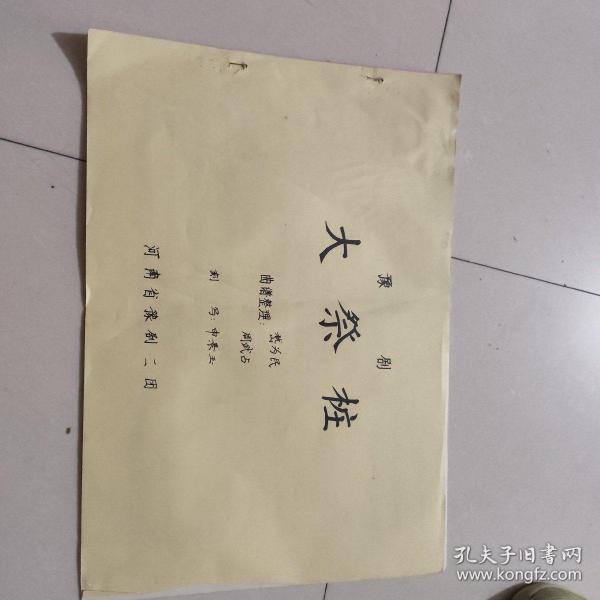 豫剧
大祭桩
曲谱整理：嵇为民
周武占
刻写：申长玉
河南省豫剧二团
孔夫子旧书网
www.kongfz.com